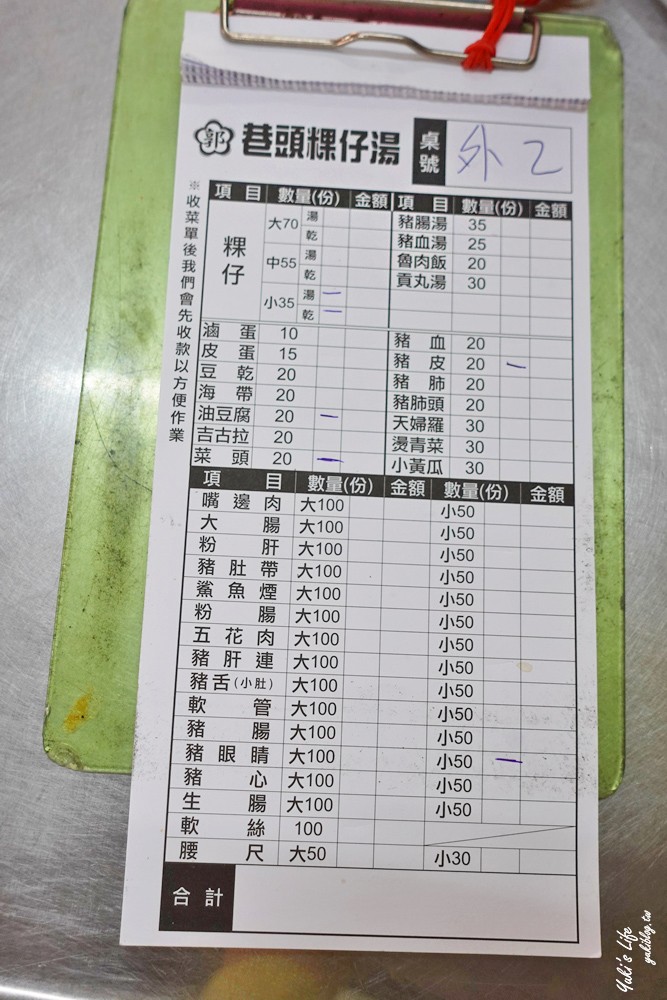 郭 巷頭粿仔湯 桌號 外 2
※收菜單後我們會先收款以方便作業
項目 數量(份) 金額 項目 數量(份) 金額
粿仔
大70 湯
乾
中55 湯
乾
小35 湯 一
乾 一
豬腸湯 35
豬血湯 25
魯肉飯 20
貢丸湯 30
滷蛋 10
皮蛋 15
豆乾 20
海帶 20
油豆腐 20 一
吉古拉 20
菜頭 20 一
豬血 20
豬皮 20 一
豬肺 20
豬肺頭 20
天婦羅 30
燙青菜 30
小黃瓜 30
項目 數量(份) 金額 數量(份) 金額
嘴邊肉 大100 小50
大腸 大100 小50
粉肝 大100 小50
豬肚帶 大100 小50
鯊魚煙 大100 小50
粉腸 大100 小50
五花肉 大100 小50
豬肝連 大100 小50
豬舌(小肚) 大100 小50
軟管 大100 小50
豬腸 大100 小50
豬眼睛 大100 小50 一
豬心 大100 小50
生腸 大100 小50
軟絲 100
腰尺 大50 小30
合計
Yuki's Life
yukiblog.tw